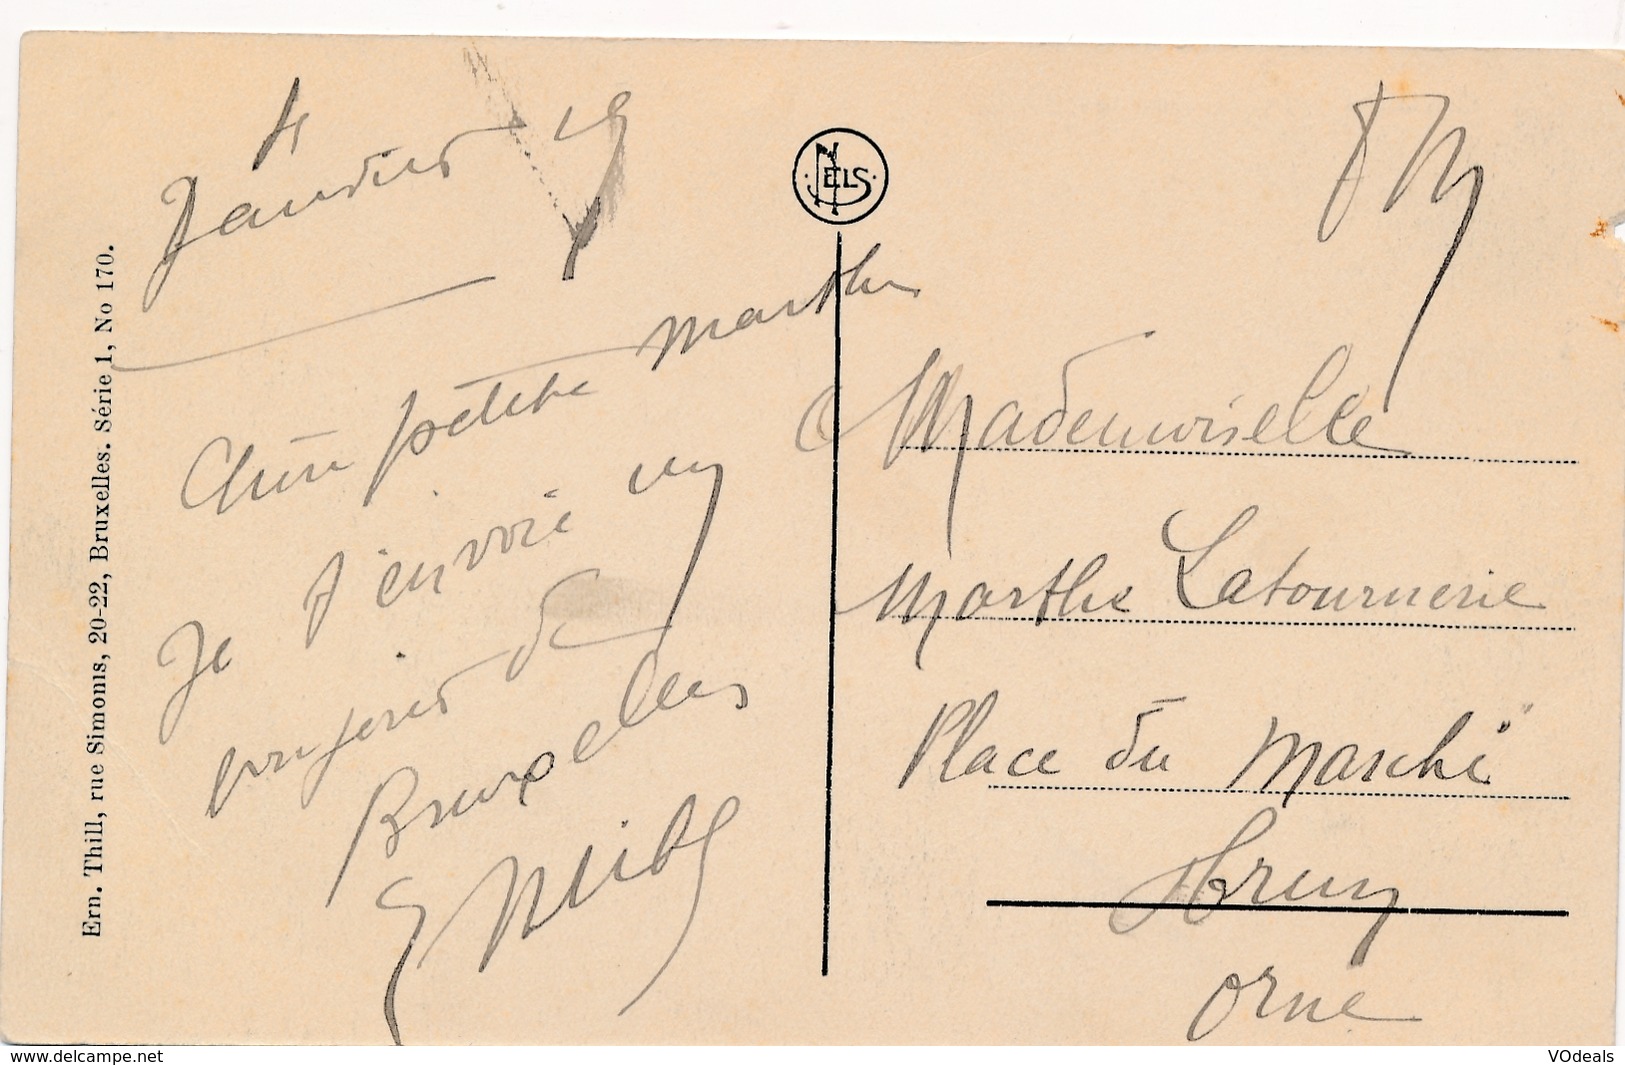 Ern. Thill, rue Simonis, 20-22, Bruxelles. Série 1, No 170.
4
Janvier 19
Chère petite Marthe
Je t'envoie un
bonjour de
Bruxelles
NELS
FM
Mademoiselle
Marthe Latournerie
Place du Marché
Orne
www.delcampe.net
VOdeals